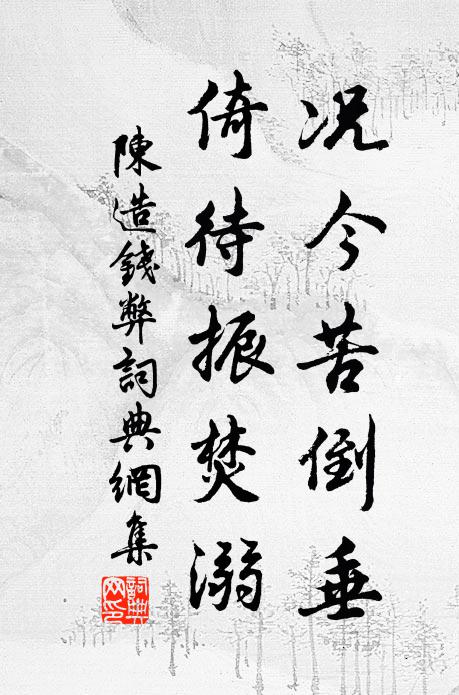 况今苦倒垂
倚待振焚溺
陳造錢弊詞典網集
詞典